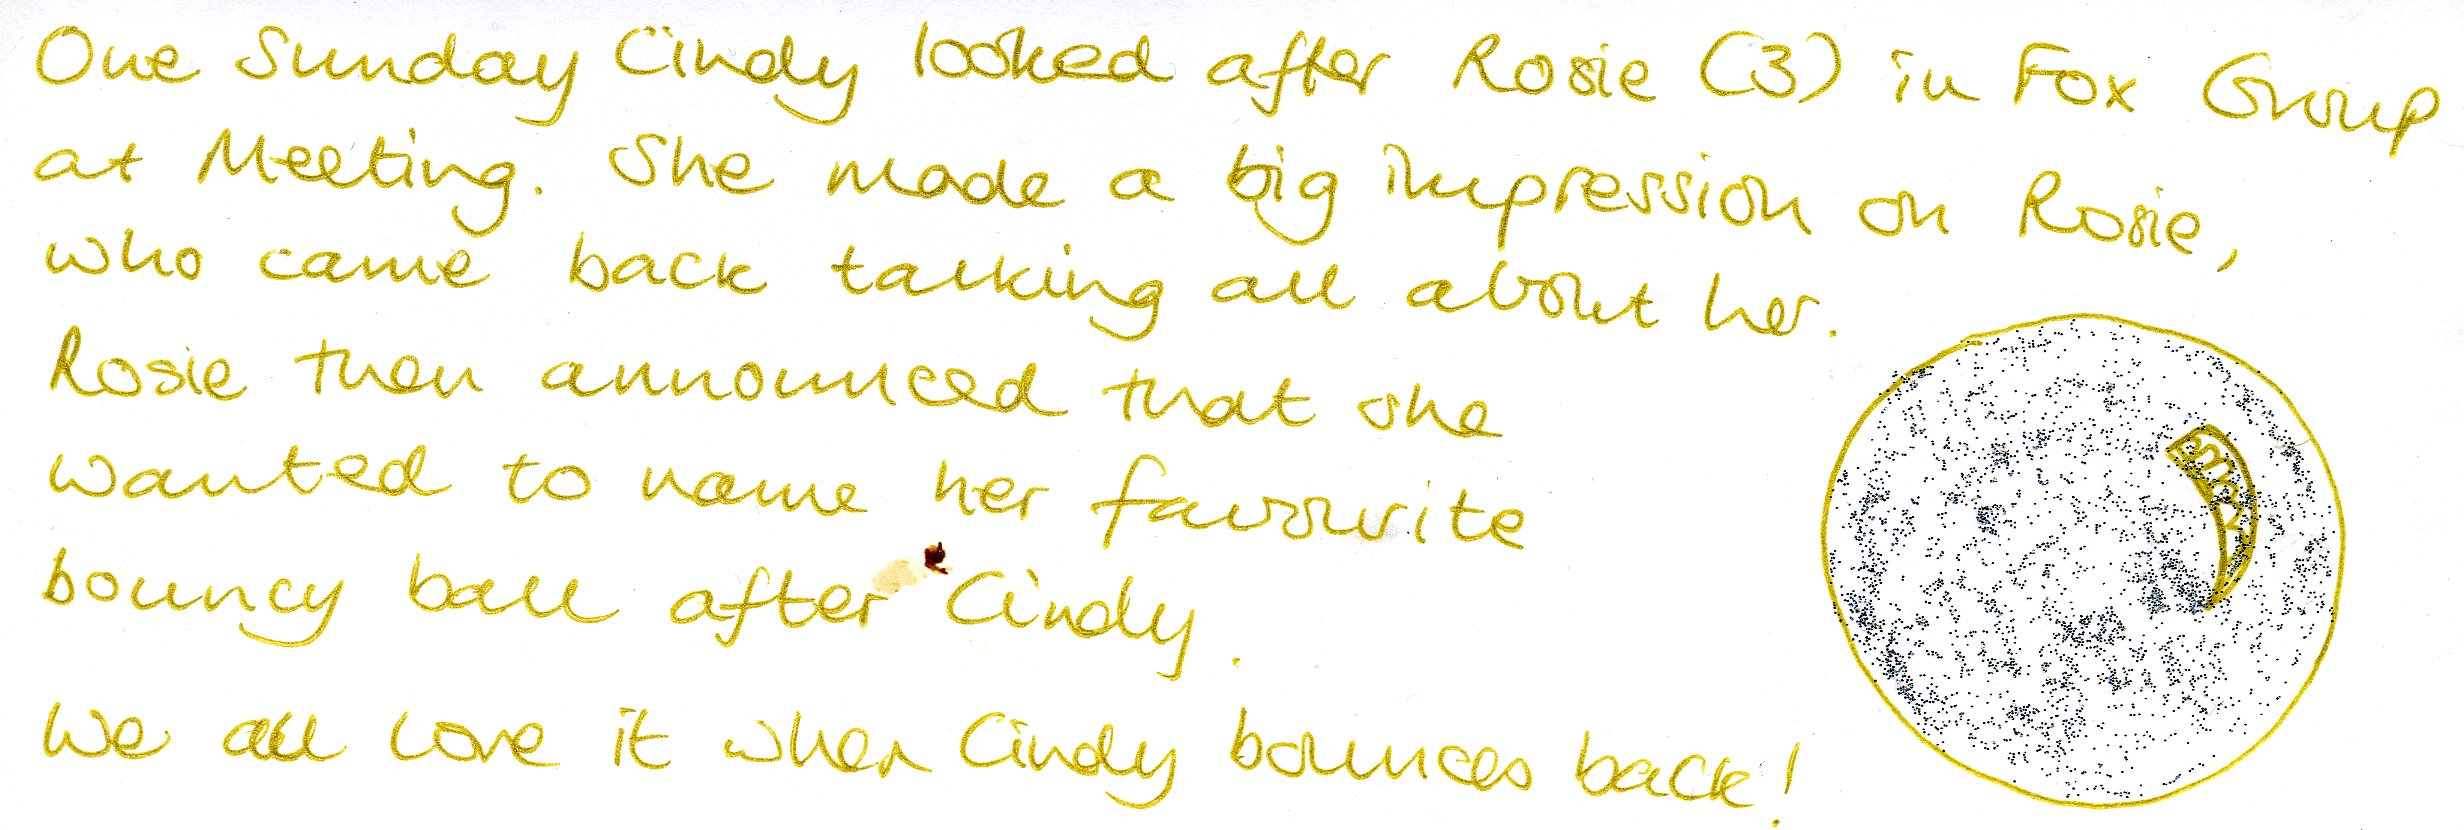 One Sunday Cindy looked after Rosie (3) in Fox Group
at Meeting. She made a big impression on Rosie,
who came back talking all about her.
Rosie then announced that she
wanted to name her favourite
bouncy ball after Cindy.
We all love it when Cindy bounces back!